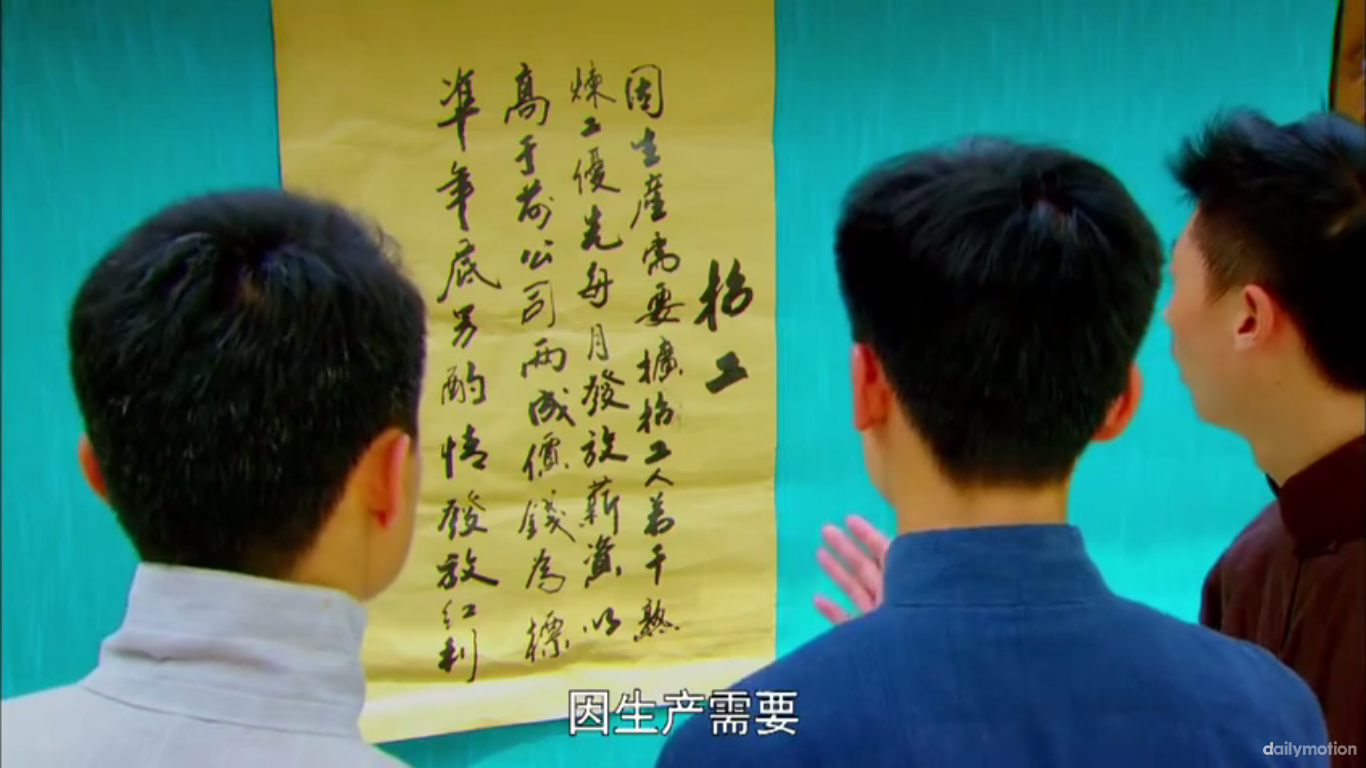 招工
因生產需要擴招工人若干熟
煉工優先每月發放薪資以
高于前公司兩成價錢為標
準年底另酌情發放红利
因生产需要
dailymotion